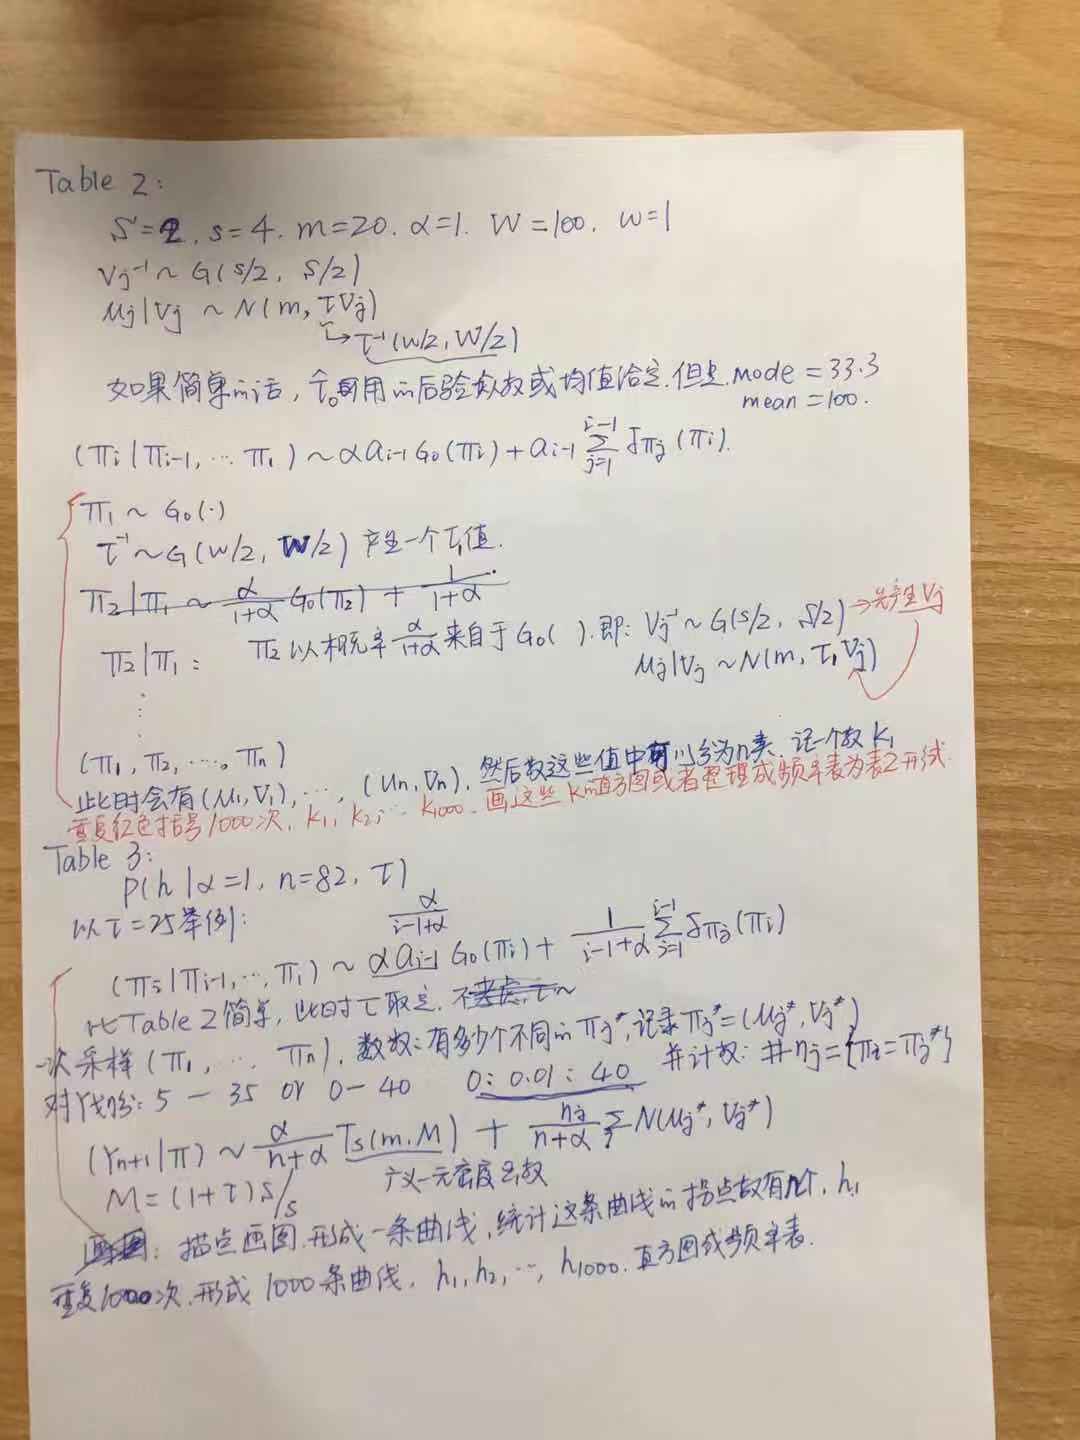 Table 2:
S=2. s=4. m=20. α=1. W=100. w=1
Vj⁻¹ ~ G(s/2, S/2)
μj|Vj ~ N(m, τVj)
↳ τ⁻¹(w/2, W/2)
如果简单的话, τ̂。可用的后验众数或均值给定. 但是. mode = 33.3
mean = 100.
(πi | πi-1, … π1) ~ α ai-1 G0(πi) + ai-1 Σ_{j=1}^{i-1} δπj (πi).
π1 ~ G0(·)
τ⁻¹ ~ G(w/2, W/2) 产生一个τ1值.
π2|π1 ~ α/(1+α) G0(π2) + 1/(1+α)
π2|π1: π2 以概率 α/(1+α) 来自于 G0( ). 即: Vj⁻¹ ~ G(s/2, S/2) → 先产生Vj
μj|Vj ~ N(m, τ1 Vj)
⋮
(π1, π2, …, πn)
此时会有 (μ1, V1), …, (un, Vn). 然后数这些值中可以分为n类. 记一个数 k1
重复红色括号1000次. k1, k2, … k1000. 画这些k的直方图或者整理成频率表为表2形式.
Table 3:
P(h | α=1, n=82, τ)
以τ=25举例:
(πi | πi-1, …, π1) ~ α ai-1 G0(πi) + 1/(i-1+α) Σ_{j=1}^{i-1} δπj (πi)
α/(i-1+α)
比Table 2简单, 此时τ取定. 不考虑 τ~
一次采样 (π1, … πn), 数数: 有多少个不同的 πj*, 记录 πj* = (μj*, Vj*)
并计数: #nj = {πi = πj*}
对Y划分: 5 — 35 or 0 — 40 0 : 0.01 : 40
(Yn+1|π) ~ α/(n+α) Ts(m, M) + nj/(n+α) Σj N(μj*, Vj*)
M = (1+τ)S/s 广义一元密度函数
画图: 描点画图. 形成一条曲线, 统计这条曲线的拐点数有几个, h1
重复1000次. 形成1000条曲线. h1, h2, …, h1000. 直方图或频率表.